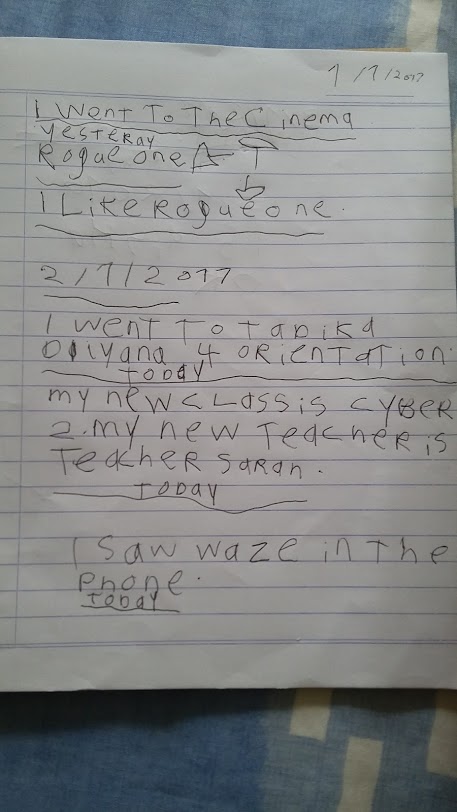 1/1/2017
I Went To The Cinema
yesteray
Rogue one A T
I Like Rogue one.
2/1/2017
I went To Tadika
Oliyana 4 ORienTaTion.
TODAY
my new cLass is cyBER
2. my new Teacher is
Teacher Sarah.
TODAY
I Saw waze in The
Phone.
TODAY